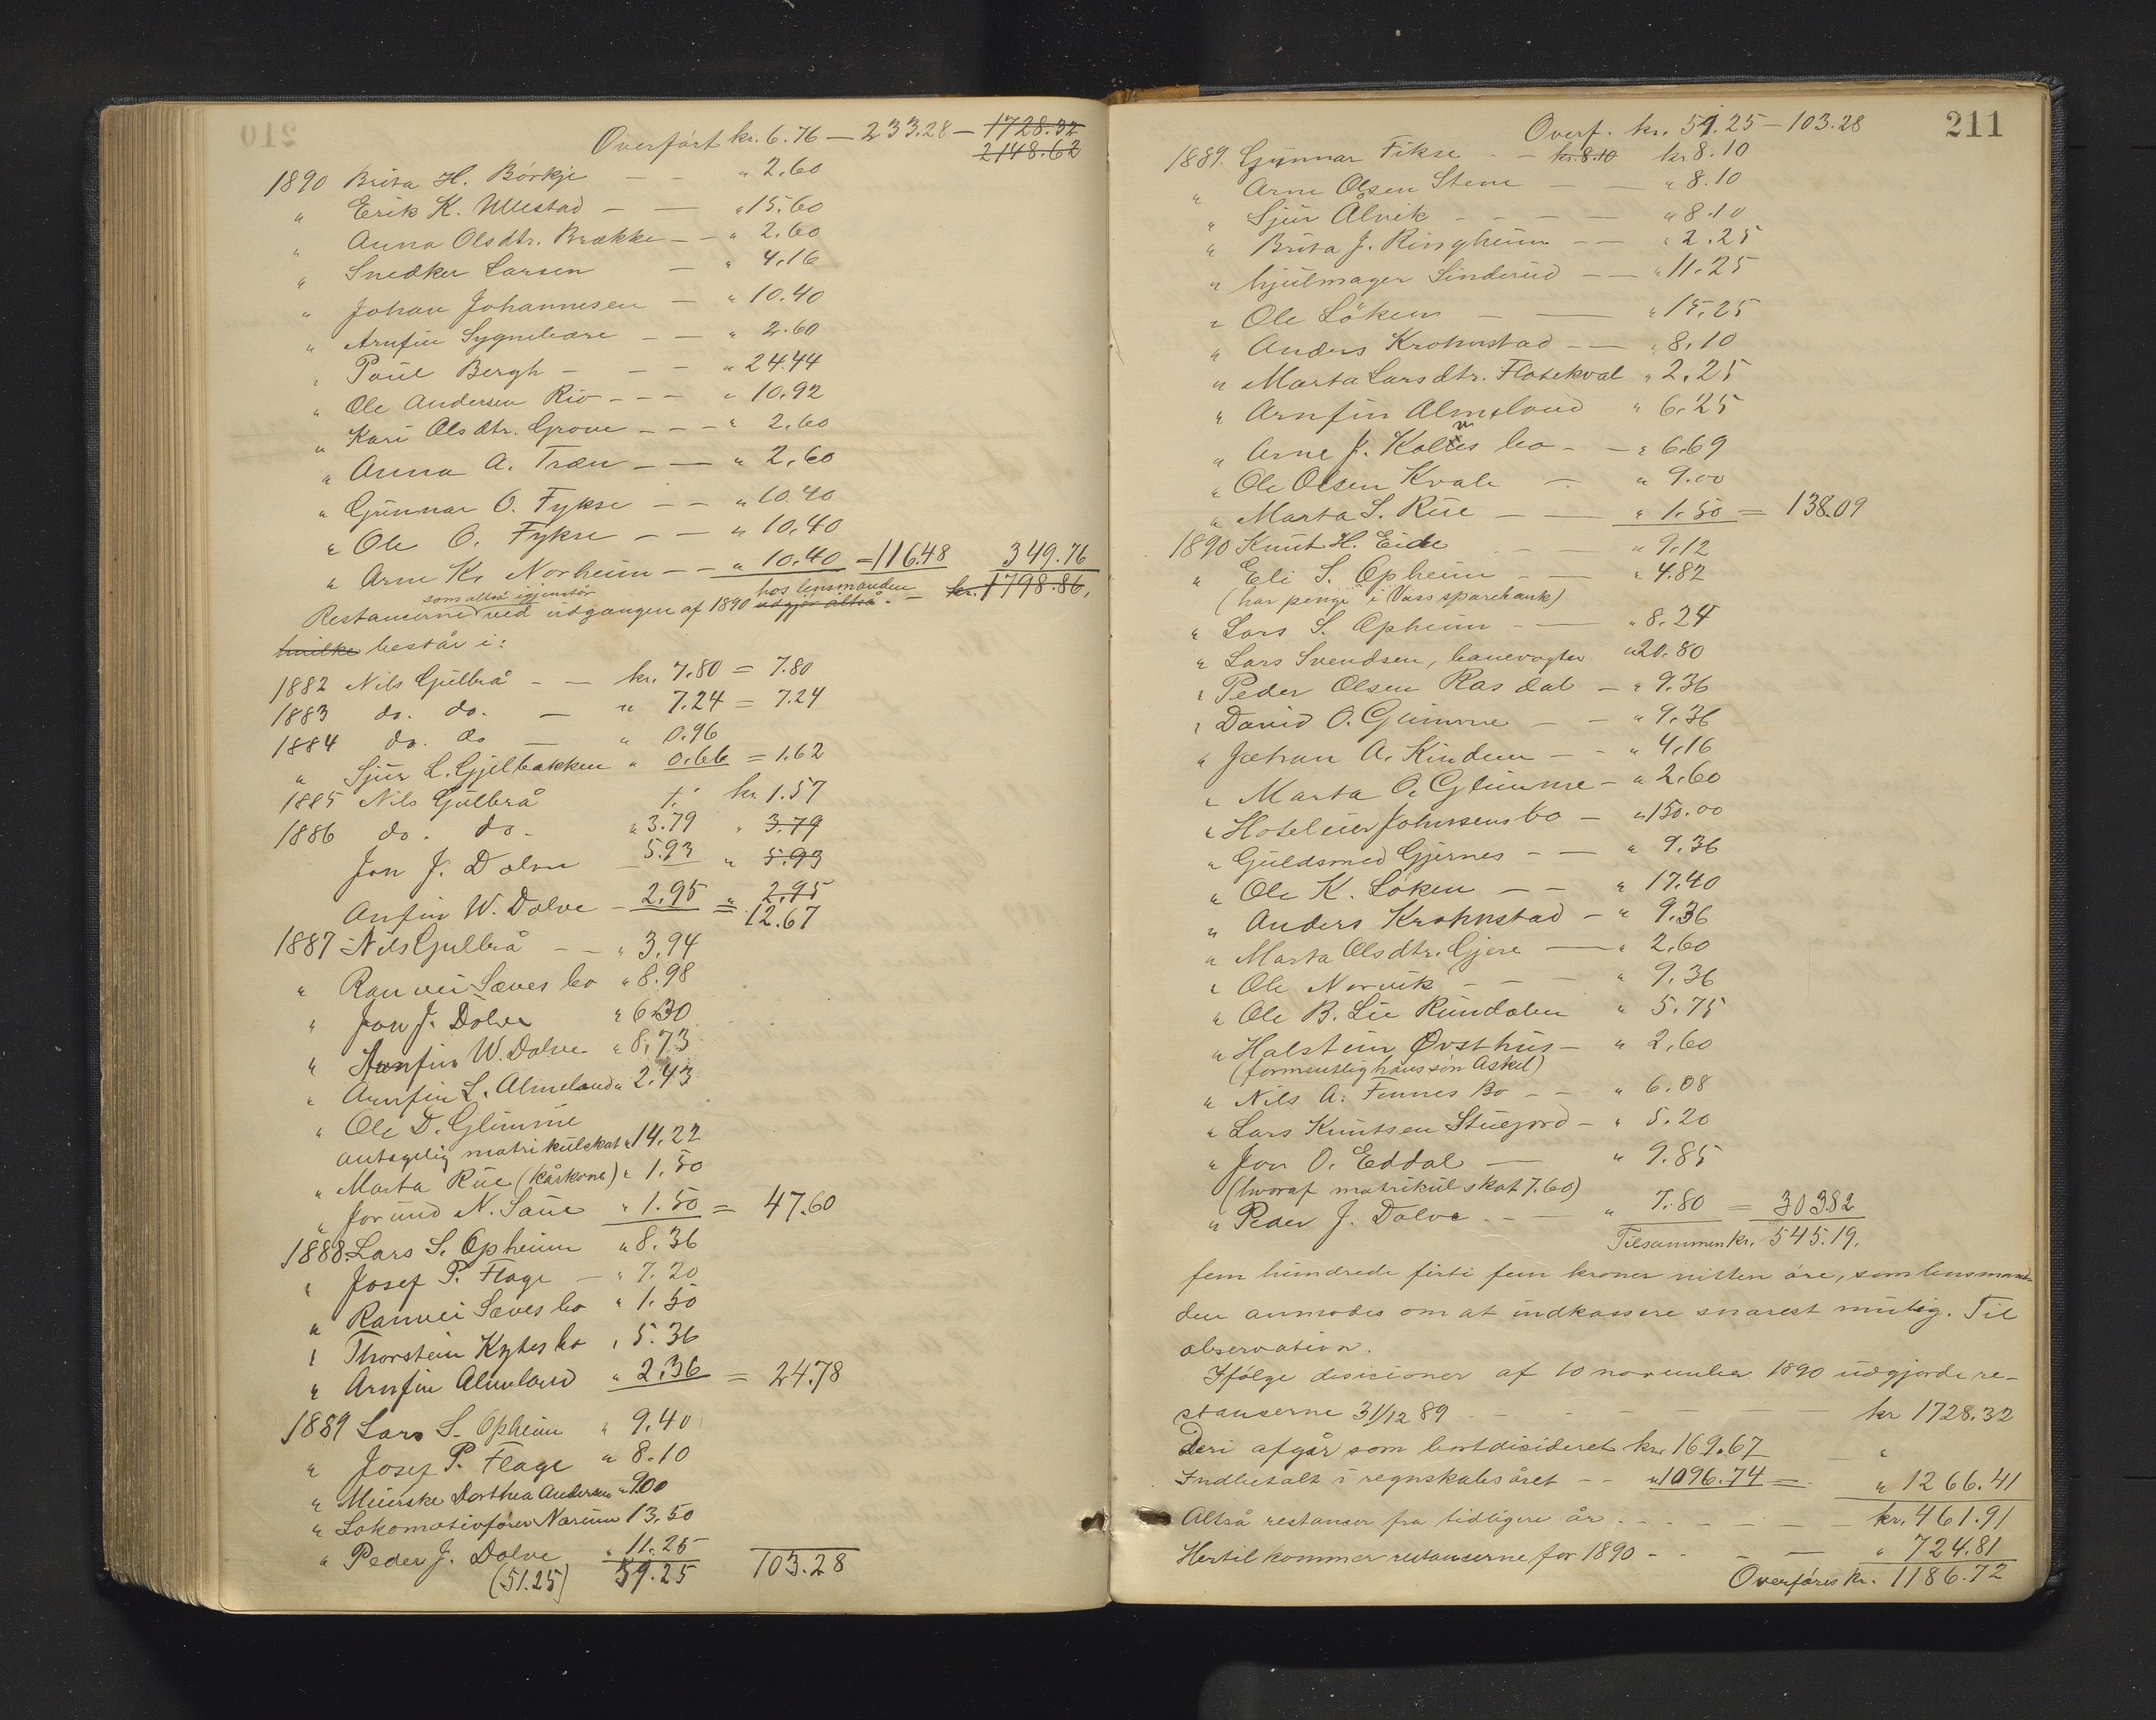 Overført kr. 6.76 — 233.28 — 1728.32
2148.62
1890 Brita H. Børkje — — " 2.60
" Erik K. Ullestad — — " 15.60
" Anna Olsdtr. Brække — — " 2.60
" Snedker Larsen — " 4.16
" Johan Johannesen — " 10.40
" Arnfin Sygnebære — — " 2.60
" Poul Bergh — — — " 24.44
" Ole Andersen Rio — — — " 10.92
" Kari Olsdtr. Grove — — — " 2.60
" Anna A. Træn — — " 2.60
" Gunnar O. Fykse — — " 10.40
" Ole O. Fykse — — " 10.40
" Arne K. Norheim — — " 10.40 = 116.48 349.76
som altså igjenstår hos lensmanden
Restanserne ved udgangen af 1890 udgjør altså. — kr. 1798.86,
hvilke består i:
1882 Nils Gulbrå — — kr. 7.80 = 7.80
1883 do. do. — " 7.24 = 7.24
1884 do. do — " 0.96
" Sjur L. Gjelbakken " 0.66 = 1.62
1885 Nils Gulbrå kr. 1.57
1886 do. do. " 3.79 " 3.79
Jon J. Dolve 5.93 " 5.93
Anfin W. Dolve — 2.95 " 2.95
= 12.67
1887 Nils Gulbrå — — " 3.94
" Ranvei Sæves bo " 8.98
" Jon J. Dolve " 6.30
" Arnfin W. Dolve " 8.73
" Arnfin L. Almeland " 2.43
" Ole D. Glimme
antagelig matrikulskat " 14.22
" Marta Rue (kårkone) " 1.50
" Jorund N. Saue " 1.50 = 47.60
1888 Lars S. Opheim " 8.36
" Josef P. Flage — " 7.20
" Ranvei Sæves bo " 1.50
" Thorstein Kytes bo " 5.36
" Arnfin Almeland " 2.36 = 24.78
1889 Lars S. Opheim " 9.40
" Josef P. Flage " 8.10
" Meierske Dorthea Andersen " 9.00
" Lokomotivfører Nærum 13.50
" Peder J. Dolve " 11.25
(51.25) 59.25 103.28
211
Overf. kr. 51.25 — 103.28
1889. Gunnar Fikse — — kr. 8.10 kr 8.10
" Arne Olsen Stene — — " 8.10
" Sjur Ålvik — — — — " 8.10
" Brita J. Ringheim — — " 2.25
" hjulmager Linderud — — " 11.25
" Ole Løken — — " 15.25
" Anders Krohnstad — — " 8.10
" Marta Larsdtr. Flatekval " 2.25
" Arnfin Almeland " 6.25
" Arne J. Koltes bo — — " 6.69
" Ole Olsen Kvale — " 9.00
" Marta S. Rue — — " 1.50 = 138.09
1890 Knut H. Eide — " 9.12
" Eli S. Opheim — — " 4.82
(har penge i Voss sparebank)
" Lars S. Opheim — — " 8.24
" Lars Svendsen, banevogter " 20.80
" Peder Olsen Rasdal — " 9.36
" David O. Glimme — — " 9.36
" Johan A. Kindem — — " 4.16
" Marta O. Glimme — " 2.60
" Hoteleier Johnsens bo — " 150.00
" Guldsmed Gjernes — — " 9.36
" Ole K. Løken — — " 17.40
" Anders Krohnstad — " 9.36
" Marta Olsdtr. Gjere — " 2.60
" Ole Norvik — — — " 9.36
" Ole B. Lie Rundalen " 5.75
" Halstein Øvsthus — " 2.60
(formentlig hans søn Askel)
" Nils A. Finnes Bo — — " 6.08
" Lars Knutsen Stuegord — " 5.20
" Jon O. Eddal — " 9.85
(hvoraf matrikulskat 7.60)
" Peder J. Dolve — — " 7.80 = 303.82
Tilsammen kr. 545.19.
fem hundrede firti fem kroner nitten øre, som lensman-
den anmodes om at indkassere snarest mulig. Til
observation.
Ifølge desisioner af 10 november 1890 udgjorde re-
stanserne 31/12 89 — — — — — kr 1728.32
Deri afgår som bortdisideret kr. 169.67 — "
Indbetalt i regnskabsåret — — " 1096.74 = " 1266.41
Altså restanser fra tidligere år — — — — kr. 461.91
Hertil kommer restanserne for 1890 — — — " 724.81
Overføres kr. 1186.72